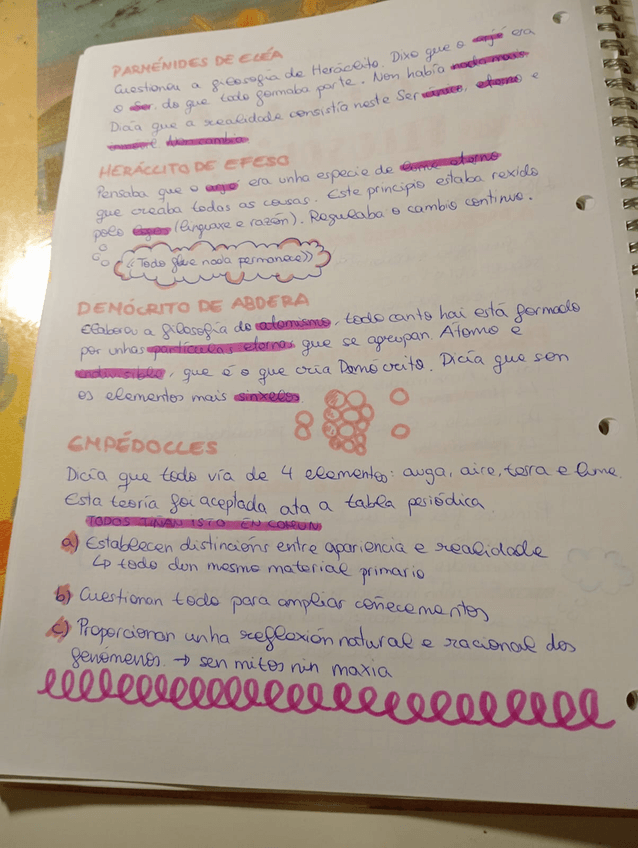 PARMÉNIDES DE ELÉA
Cuestionou a filosofía de Heráclito. Dixo que o arjé era
o Ser, do que todo formaba parte. Non había nada máis
Dicía que a realidade consistía neste Ser único, eterno e
sen cambio
HERÁCLITO DE EFESO
Pensaba que o arjé era unha especie de lume eterno
que creaba todas as cousas. Este principio estaba rexido
polo logos (linguaxe e razón). Regulaba o cambio continuo.
«Todo flúe nada permanece»
DEMÓCRITO DE ABDERA
Elaborou a filosofía do atomismo, todo canto hai está formado
por unhas partículas eternas que se agrupan. Átomo é
indivisible, que é o que cría Demócrito. Dicía que son
os elementos máis sinxelos
EMPÉDOCLES
Dicía que todo vía de 4 elementos: auga, aire, terra e lume.
Esta teoría foi aceptada ata a tabla periódica
TODOS TIÑAN ISTO EN COMÚN
a) Establecen distincións entre apariencia e realidade
↳ todo dun mesmo material primario
b) Cuestionan todo para ampliar coñecementos
c) Proporcionan unha reflexión natural e racional dos
fenómenos → sen mitos nin maxia